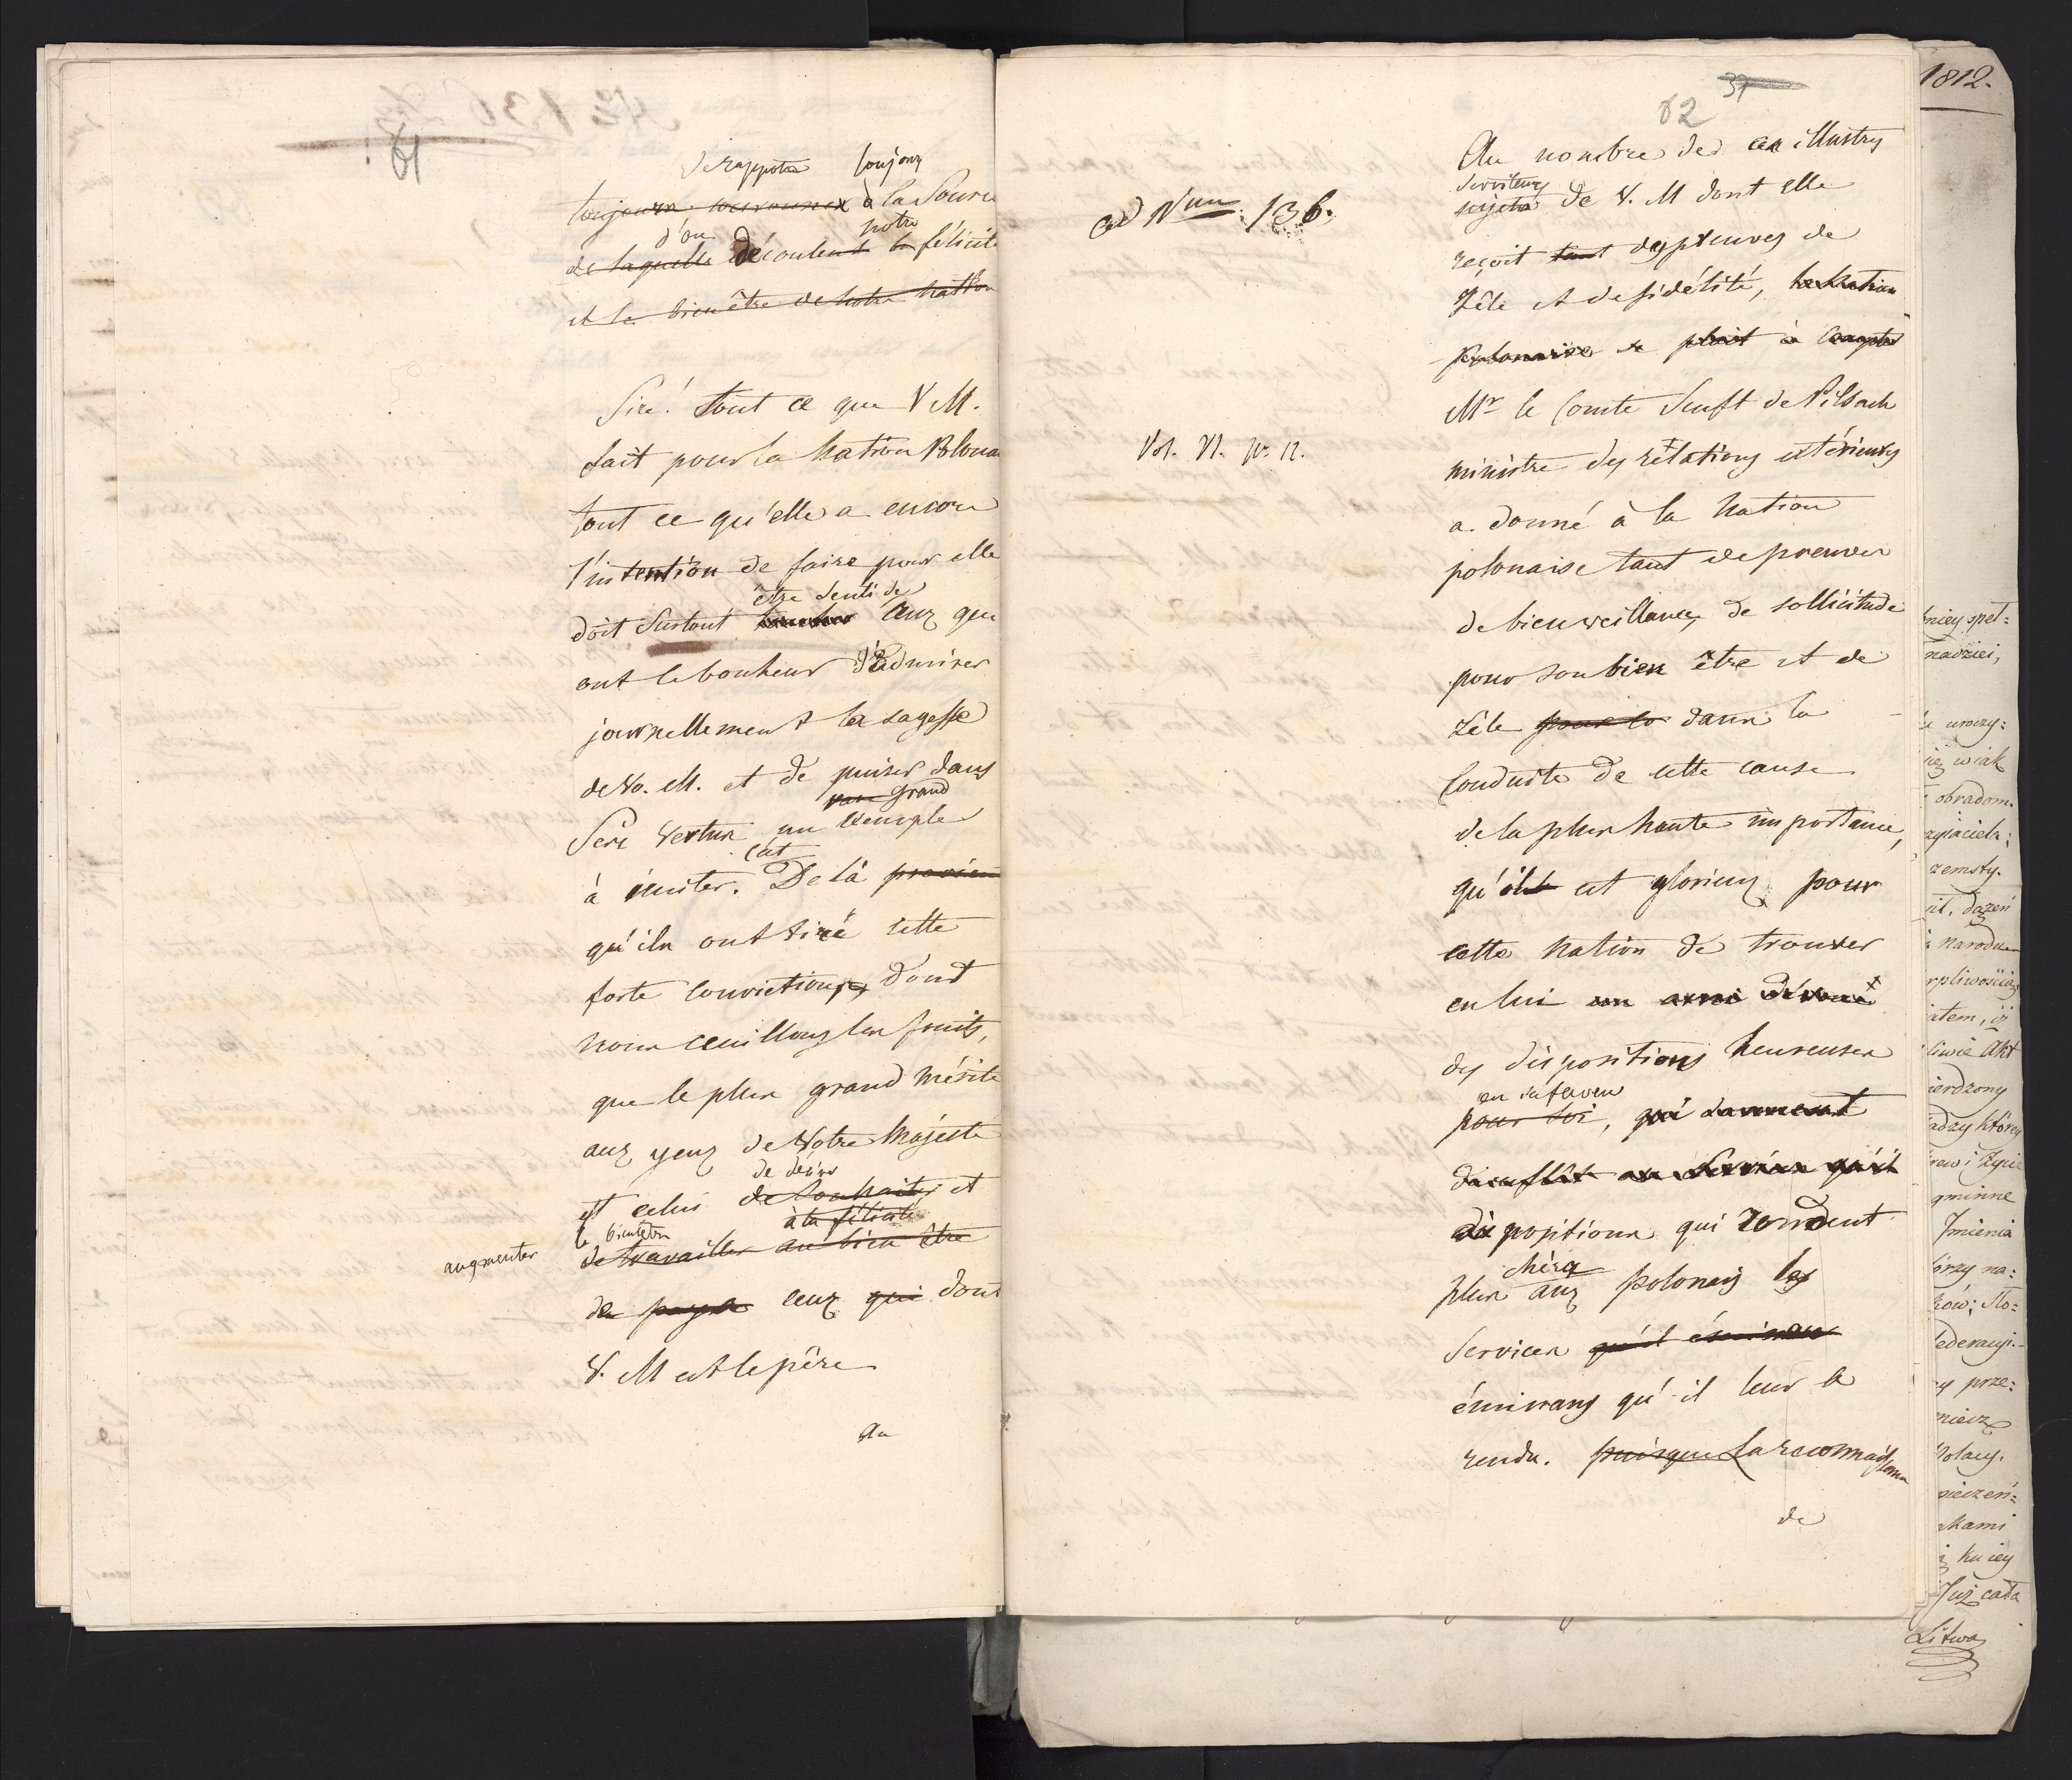 61
se rapporte toujours
toujours à la Source
d'où notre
de laquelle découlent la félicité
et le bien être de notre nation
Sire! tout ce que V M.
fait pour la Nation Polona
tout ce qu'elle a encore
l'intention de faire pour elle
être senti de
doit surtout toucher ceux qui
ont le bonheur d'admirer
journellement la sagesse
de Vo. M. et de puiser dans
rare grand
Ses vertus un exemple
c'est
à imiter. De là provien
qu'ils ont tiré cette
forte conviction, dont
nous ceuillons les fruits,
que le plus grand mérite
aux yeux de Votre Majesté
de désirer
est celui de souhaiter et
à la félicité
le bien être
augmenter
de travailler au bien être
de ceux qui dont
V. M est le père
Au
37
62
ad Num 136.
Vol. VI. Nr 12.
Au nombre des ces illustres
serviteurs
sujets de V. M dont elle
reçoit tant des preuves de
zèle et de fidélité, la Nation
Polonaise se plait à compter
Mr le Comte Senft de Pilsach
ministre des rélations extérieures
a donné à la Nation
polonaise tant de preuves
de bienveillance, de sollicitude
pour son bien être et de
zèle pour la dans la
conduite de cette cause
de la plus haute importance,
qu'il est glorieux pour
cette Nation de trouver
en lui un ami dévoué
des dispositions heureuses
en sa faveur
pour soi, qui donnent
dispositions qui rendent
chers
plus aux polonais les
services qu'il éminens
éminens qu'il leur a
rendu. puisque La reconnaissance
de
1812.
niey speł=
nadziei,
obradom.
zemsty.
narodu
Akt
ierdzony
gminne
Imienia
ów; Sto=
ederacyi.
y prze:
miecz
Polacy.
kami
Już cała
Litwa